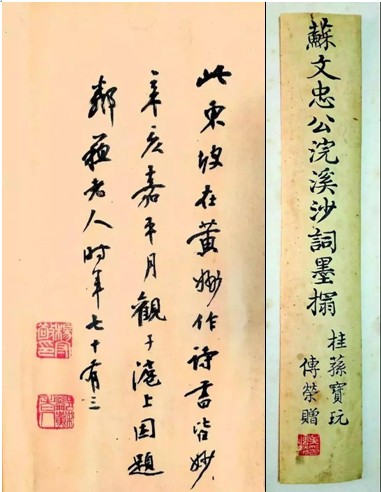 此東坡在黃州作詩書皆妙
辛亥嘉平月觀于滬上因題
鄰蘇老人時年七十有三
楊守敬印
蘇文忠公浣溪沙詞墨搨
桂蓀寶玩
傳榮贈